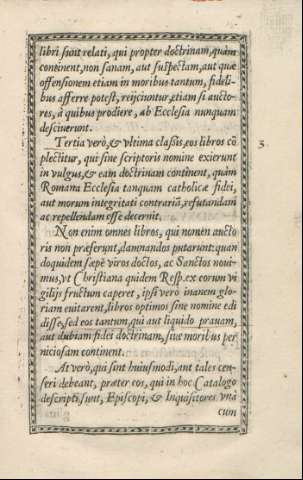 libri sunt relati, qui propter doctrinam, quàm
continent, non sanam, aut suspectam, aut quæ
offensionem etiam in moribus tantum, fideli-
bus afferre potest, reijciuntur, etiam si aucto-
res, à quibus prodiere, ab Ecclesia nunquam
desciuerunt.
Tertia verò, & vltima classis, eos libros cō
plectitur, qui sine scriptoris nomine exierunt
in vulgus, & eam doctrinam continent, quàm
Romana Ecclesia tanquam catholicæ fidei,
aut morum integritati contrariā, refutandam
ac repellendam esse decernit.
3.
Non enim omnes libros, qui nomen aucto
ris non præferunt, damnandos putarunt: quan
doquidem sæpè viros doctos, ac Sanctos noui-
mus, vt Christiana quidem Resp. ex eorum vi
gilijs fructum caperet, ipsi verò inanem glo-
riam euitarent, libros optimos sine nomine edi
disse, sed eos tantum, qui aut liquido prauam,
aut dubiam fidei doctrinam, siue moribus per
niciosam continent.
At verò, qui sint huiusmodi, aut tales cen-
seri debeant, præter eos, qui in hoc Catalogo
descripti sunt, Episcopi, & Inquisitores vnà
cum